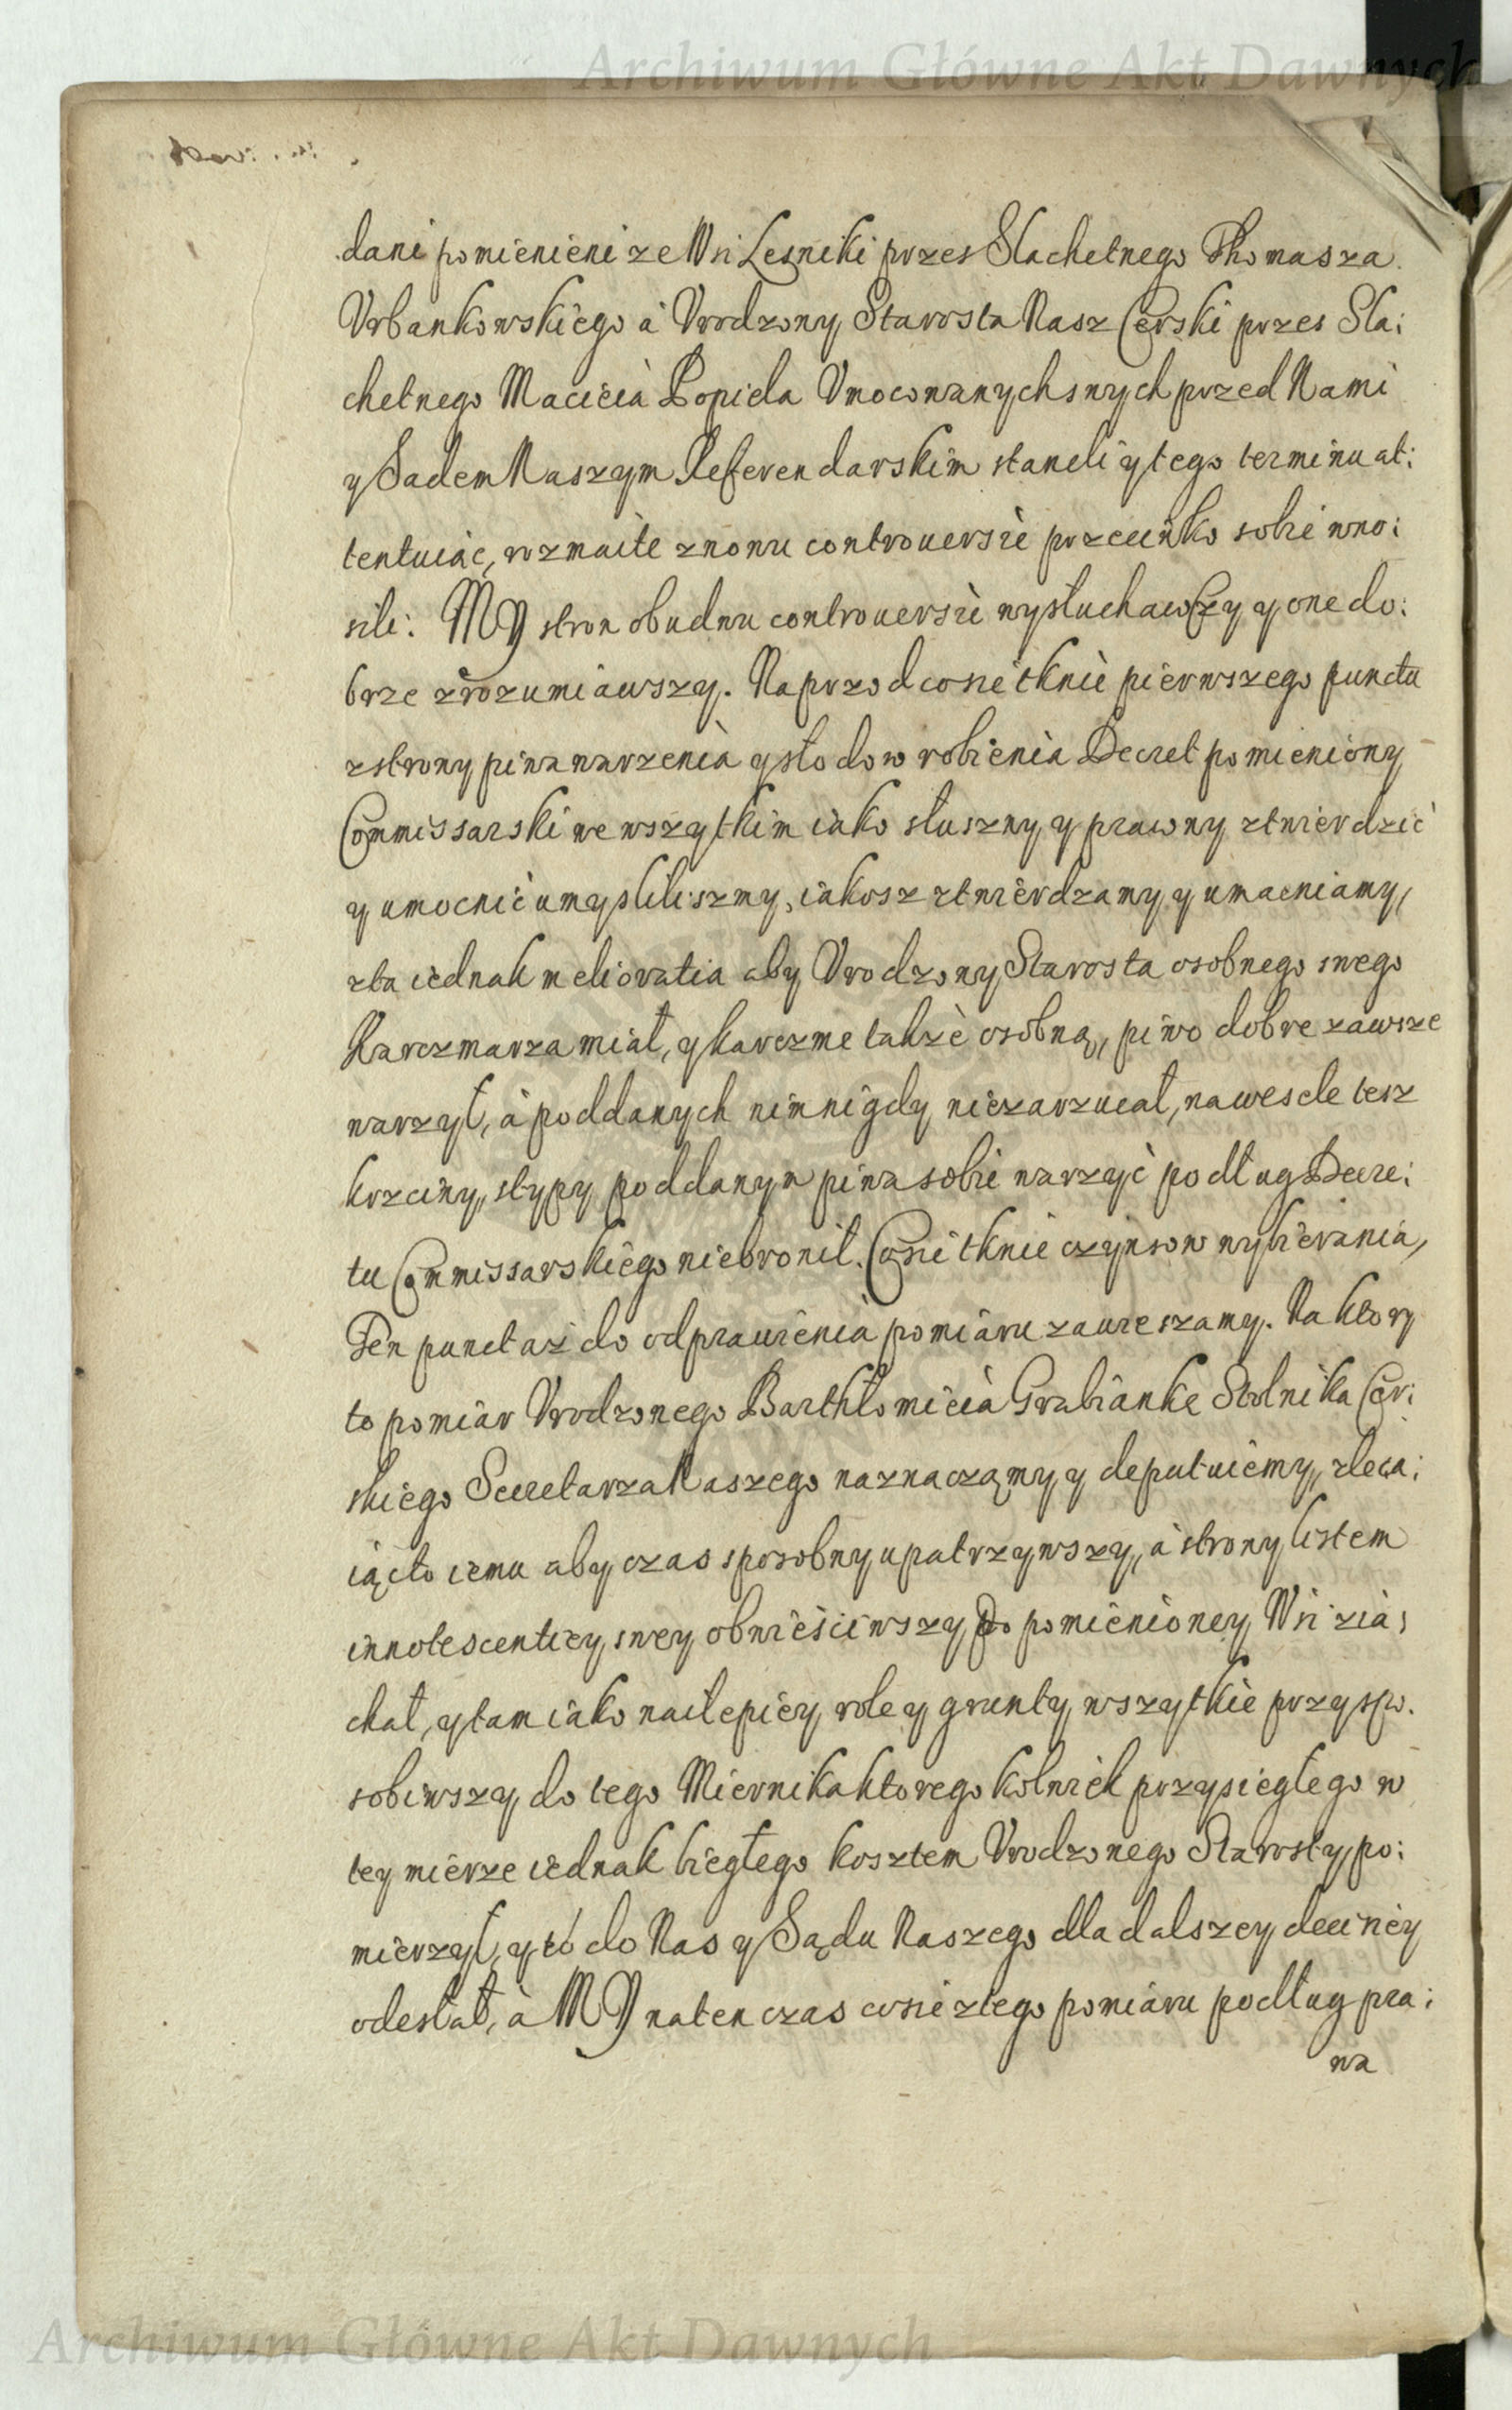 Archiwum Główne Akt Dawnych
dani pomienieni ze Wsi Lesniki przes Slachetnego Thomasza
Vrbankowskiego à Vrodzony Starosta Nasz Cerski przes Sla:
chetnego Macieia Popiela Vmocowanych swych przed Nami
y Sadem Naszym Referendarskim staneli y tego terminu at:
tentuiąc, rozmaite znowu controuersie przeciwko sobie wno:
sili: MY stron obudwu controuersii wysłuchawszy y one do:
brze zrozumiawszy. Naprzod co sie tknie pierwszego punctu
z strony piwa warzenia y słodow robienia Decret pomieniony
Commissarski we wszytkim iako słuszny y prawny ztwierdzić
y umocnić umyslilismy, iakosz ztwierdzamy y umacniamy,
z ta iednak melioratia aby Vrodzony Starosta osobnego swego
Karczmarza miał, y karczme także osobną, piwo dobre zawsze
warzył, à poddanych nim nigdy niezarzucał, na wesele tesz
krzciny, stypy poddanym piwa sobie warzyć podług Decre:
tu Commissarskiego niebronił. Co sie tknie czynszow wybierania,
Ten punct aż do odprawienia pomiaru zawieszamy. Na ktory
to pomiar Vrodzonego Barthłomieia Grabianke Stolnika Cer:
skiego Secretarza Naszego naznaczamy y deputuiemy, zleca:
iąc to iemu aby czas sposobny upatrzywszy, à strony listem
innotescentiey swey obwieściwszy do pomienioney Wsi zia:
chał, y tam iako nailepiey role y grunty wszytkie przyspo.
sobiwszy do tego Miernika ktorego kolwiek przysiegłego w
tey mierze iednak biegłego kosztem Vrodzonego Starosty po:
mierzył, y to do Nas y Sądu Naszego dla dalszey deciziey
odesłał, à MY naten czas co sie z tego pomiaru podług pra:
wa
Archiwum Główne Akt Dawnych